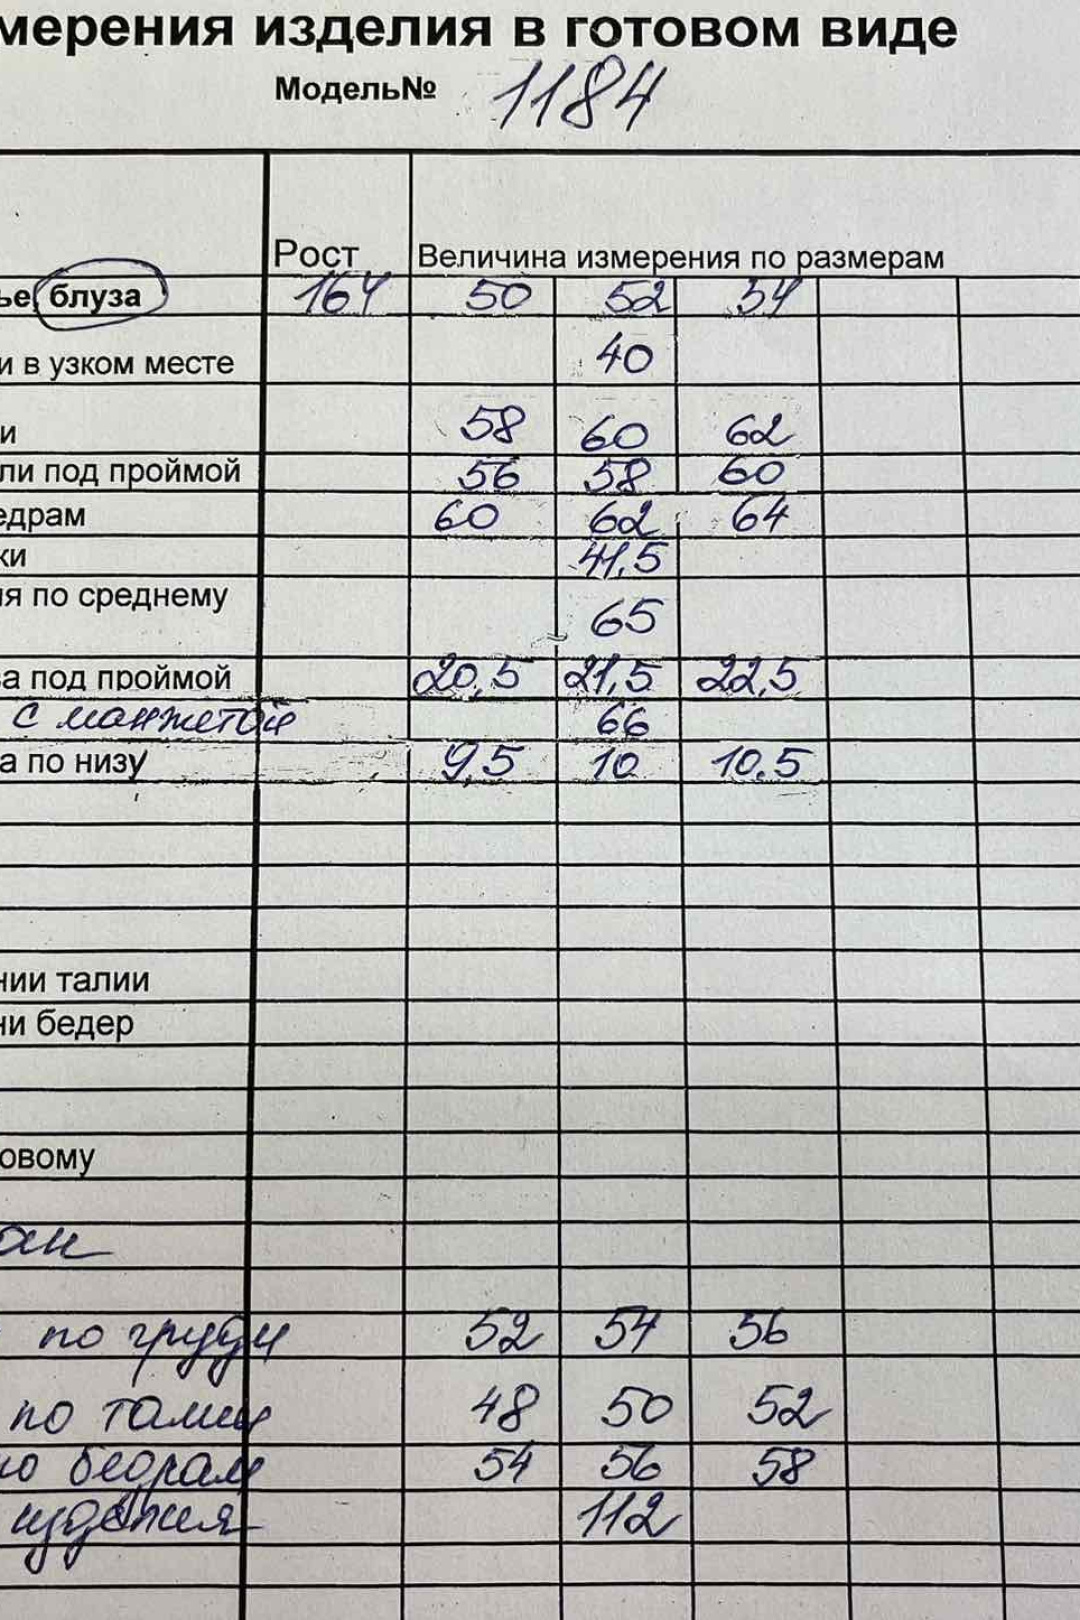 мерения изделия в готовом виде
Модель№ 1184
Рост Величина измерения по размерам
ье блуза 164 50 52 54
и в узком месте 40
и 58 60 62
ли под проймой 56 58 60
едрам 60 62 64
ки 41,5
ия по среднему 65
ва под проймой 20,5 21,5 22,5
с манжетой 66
а по низу 9,5 10 10,5
нии талии
ни бедер
овому
ан
по груди 52 54 56
по талии 48 50 52
по бедрам 54 56 58
изделия 112